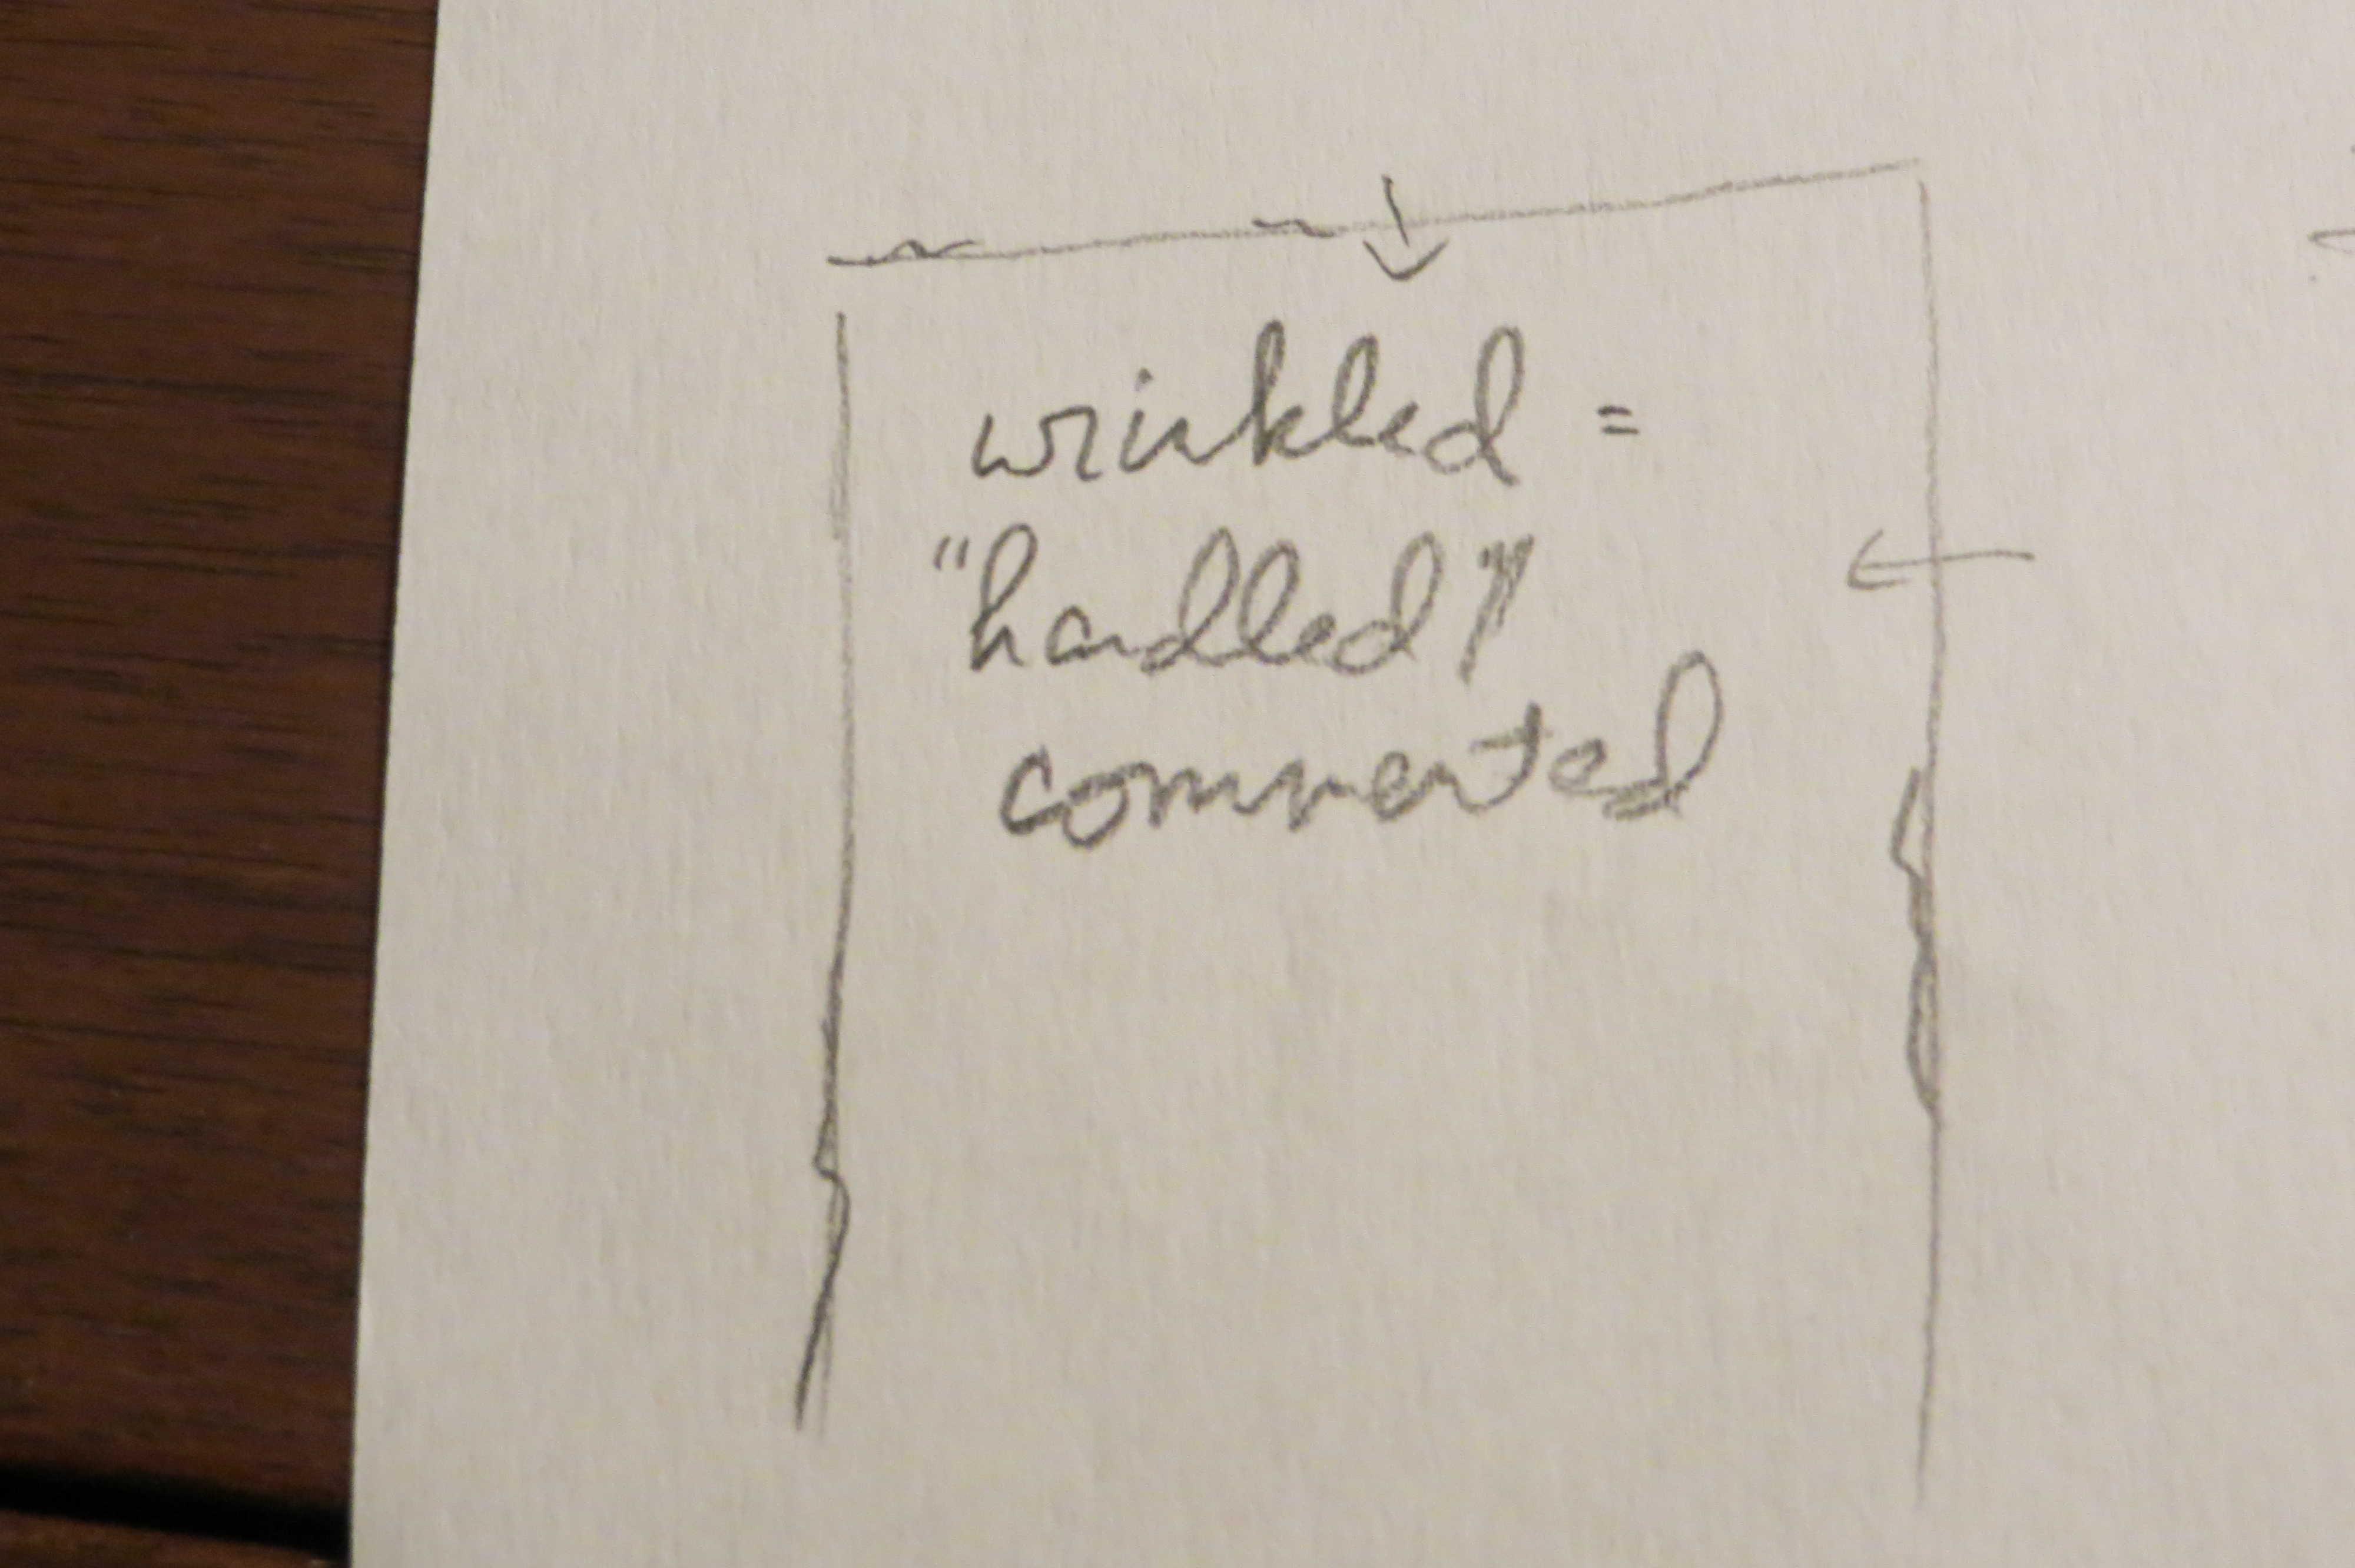 wrinkled =
"handled"/
commented